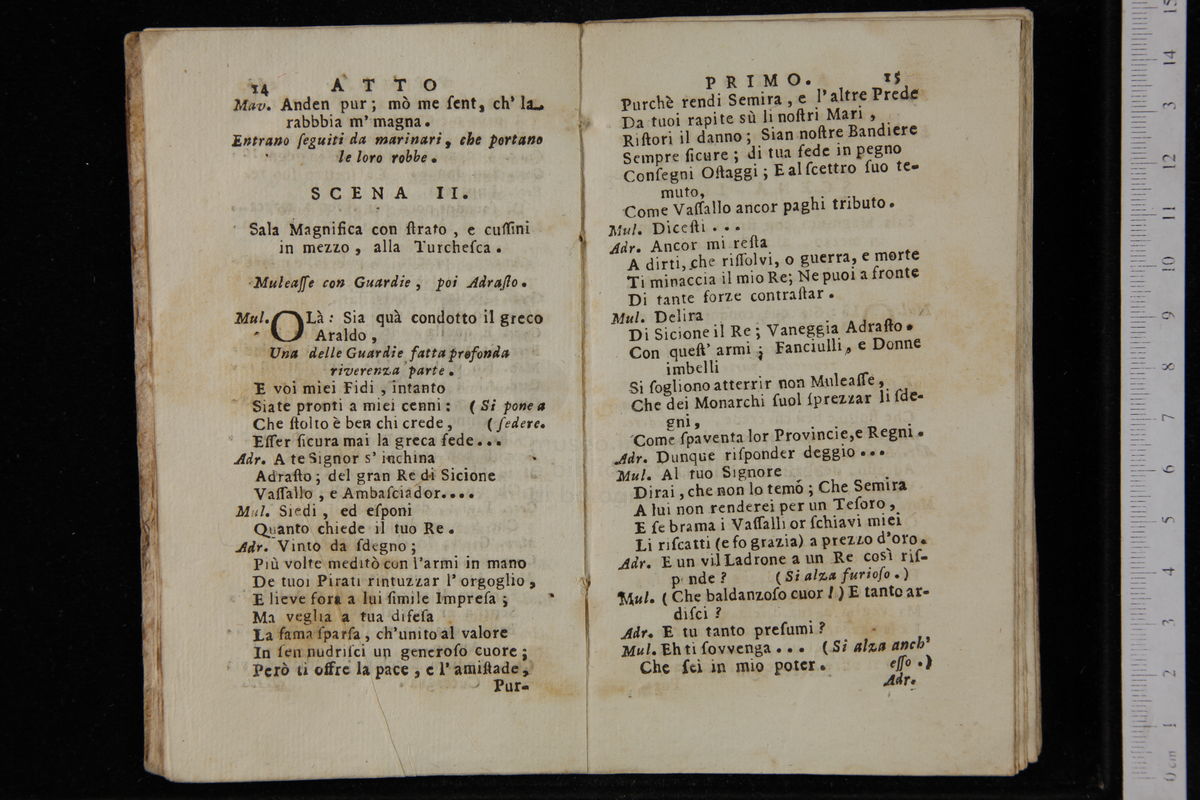 14 ATTO
Mav. Anden pur; mò me ſent, ch' la
rabbbia m' magna.
Entrano ſeguiti da marinari, che portano
le loro robbe.
SCENA II.
Sala Magnifica con ſtrato, e cuſſini
in mezzo, alla Turcheſca.
Muleaſſe con Guardie, poi Adraſto.
Mul. OLà: Sia quà condotto il greco
Araldo,
Una delle Guardie fatta profonda
riverenza parte.
E voi miei Fidi, intanto
Siate pronti a miei cenni: (Si pone a
Che ſtolto è ben chi crede, (ſedere.
Eſſer ſicura mai la greca fede...
Adr. A te Signor s' inchina
Adraſto; del gran Re di Sicione
Vaſſallo, e Ambaſciador....
Mul. Siedi, ed eſponi
Quanto chiede il tuo Re.
Adr. Vinto da ſdegno;
Più volte meditò con l'armi in mano
De tuoi Pirati rintuzzar l' orgoglio,
E lieve fora a lui ſimile Impreſa;
Ma veglia a tua difeſa
La fama ſparſa, ch'unito al valore
In ſen nudriſci un generoſo cuore;
Però ti offre la pace, e l' amiſtade,
Pur-
PRIMO. 15
Purchè rendi Semira, e l'altre Prede
Da tuoi rapite sù li noſtri Mari,
Riſtori il danno; Sian noſtre Bandiere
Sempre ſicure; di tua fede in pegno
Conſegni Oſtaggi; E al ſcettro ſuo te-
muto,
Come Vaſſallo ancor paghi tributo.
Mul. Diceſti...
Adr. Ancor mi reſta
A dirti, che riſſolvi, o guerra, e morte
Ti minaccia il mio Re; Ne puoi a fronte
Di tante forze contraſtar.
Mul. Delira
Di Sicione il Re; Vaneggia Adraſto.
Con queſt' armi; Fanciulli, e Donne
imbelli
Si ſogliono atterrir non Muleaſſe,
Che dei Monarchi ſuol ſprezzar li ſde-
gni,
Come ſpaventa lor Provincie, e Regni.
Adr. Dunque riſponder deggio...
Mul. Al tuo Signore
Dirai, che non lo temo; Che Semira
A lui non renderei per un Teſoro,
E ſe brama i Vaſſalli or ſchiavi miei
Li riſcatti (e fo grazia) a prezzo d'oro.
Adr. E un vil Ladrone a un Re così riſ-
p nde? (Si alza furioſo.)
Mul. (Che baldanzoſo cuor!) E tanto ar-
diſci?
Adr. E tu tanto preſumi?
Mul. Eh ti ſovvenga... (Si alza anch'
Che ſei in mio poter. eſſo.)
Adr.
0 cm 1 2 3 4 5 6 7 8 9 10 11 12 3 14 15